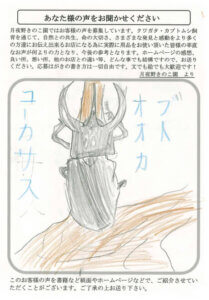 あなた様の声をお聞かせください
月夜野きのこ園ではお客様の声を募集しています。クワガタ・カブトムシ飼
育を通じて、自然との共生、命の大切さ、さまざまな発見と感動をより多く
の方達にお伝え出来るお店になる為に実際に用品をお使い頂いた皆様の率直
なお声が何よりの力となり、今後の参考となります。ホームページの感想、
良い所、悪い所、他のお店との違い等、どんな事でも結構ですので、お送り
ください。応募はがきの書き方は一切自由です。文でも絵でも大歓迎です！
月夜野きのこ園 より
ブ
オオカ
ユーカサス
このお客様の声を書籍など紙面やホームページなどで、ご紹介させていた
だくことがございます。ご了承の上お送り下さい。